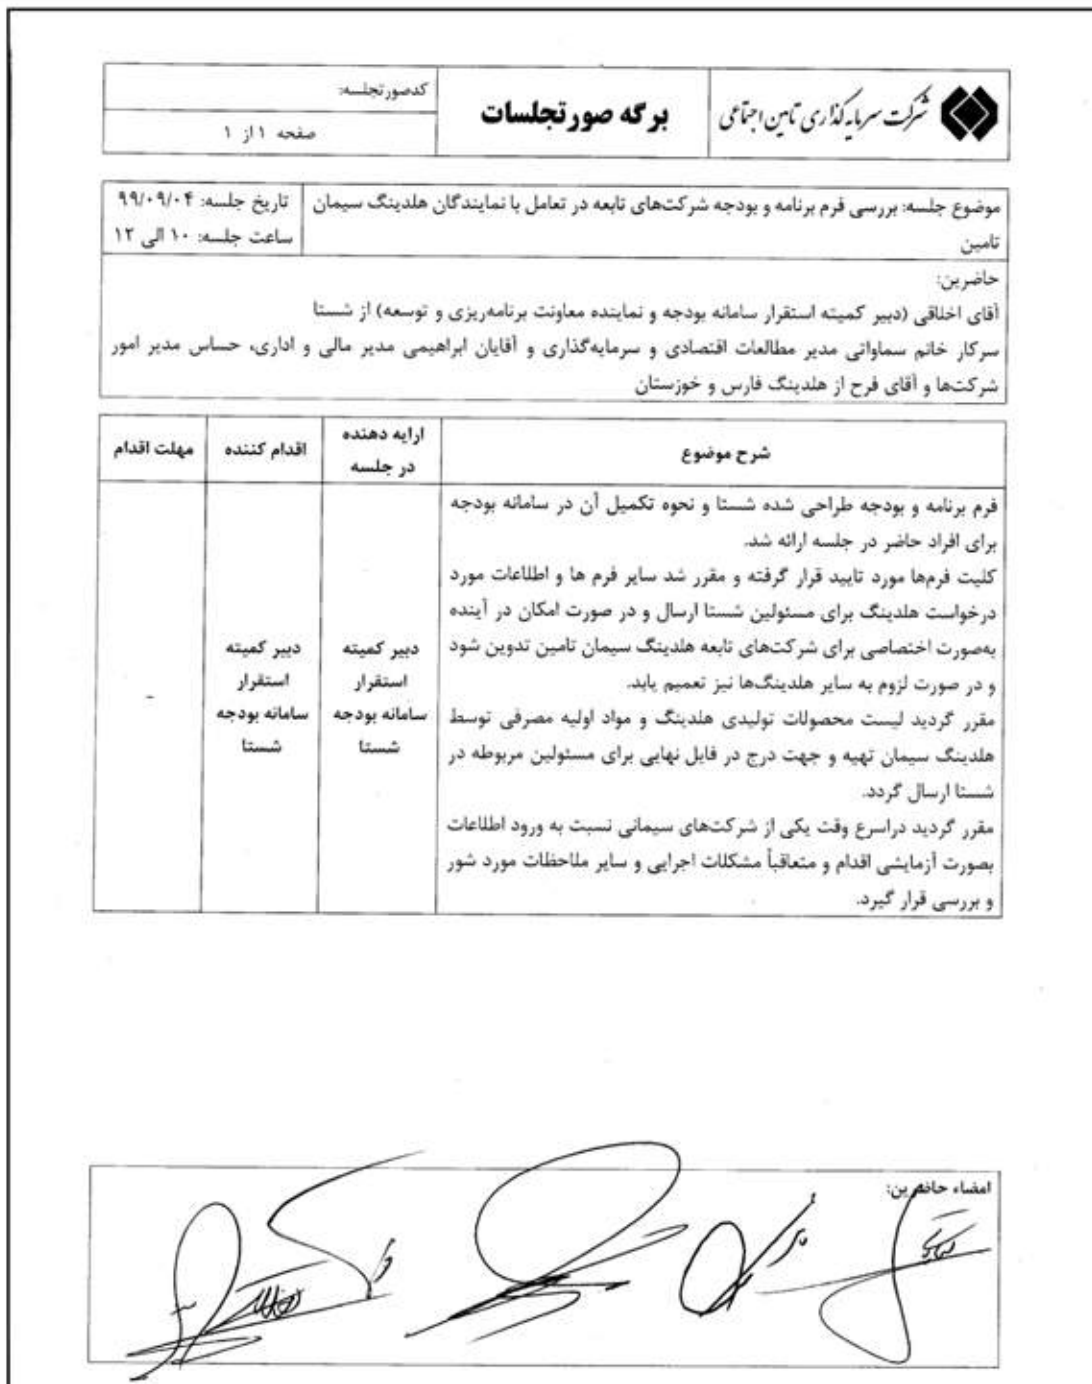 شرکت سرمایه گذاری تامین اجتماعی
برگه صورتجلسات
کدصورتجلسه:
صفحه ۱ از ۱
موضوع جلسه: بررسی فرم برنامه و بودجه شرکت‌های تابعه در تعامل با نمایندگان هلدینگ سیمان
تامین
تاریخ جلسه: ۹۹/۰۹/۰۴
ساعت جلسه: ۱۰ الی ۱۲
حاضرین:
آقای اخلاقی (دبیر کمیته استقرار سامانه بودجه و نماینده معاونت برنامه‌ریزی و توسعه) از شستا
سرکار خانم سماواتی مدیر مطالعات اقتصادی و سرمایه‌گذاری و آقایان ابراهیمی مدیر مالی و اداری، حساس مدیر امور
شرکت‌ها و آقای فرح از هلدینگ فارس و خوزستان
شرح موضوع
ارایه دهنده
در جلسه
اقدام کننده
مهلت اقدام
فرم برنامه و بودجه طراحی شده شستا و نحوه تکمیل آن در سامانه بودجه
برای افراد حاضر در جلسه ارائه شد.
کلیت فرم‌ها مورد تایید قرار گرفته و مقرر شد سایر فرم ها و اطلاعات مورد
درخواست هلدینگ برای مسئولین شستا ارسال و در صورت امکان در آینده
به‌صورت اختصاصی برای شرکت‌های تابعه هلدینگ سیمان تامین تدوین شود
و در صورت لزوم به سایر هلدینگ‌ها نیز تعمیم یابد.
مقرر گردید لیست محصولات تولیدی هلدینگ و مواد اولیه مصرفی توسط
هلدینگ سیمان تهیه و جهت درج در فایل نهایی برای مسئولین مربوطه در
شستا ارسال گردد.
مقرر گردید دراسرع وقت یکی از شرکت‌های سیمانی نسبت به ورود اطلاعات
بصورت آزمایشی اقدام و متعاقباً مشکلات اجرایی و سایر ملاحظات مورد شور
و بررسی قرار گیرد.
دبیر کمیته
استقرار
سامانه بودجه
شستا
دبیر کمیته
استقرار
سامانه بودجه
شستا
-
امضاء حاضرین: